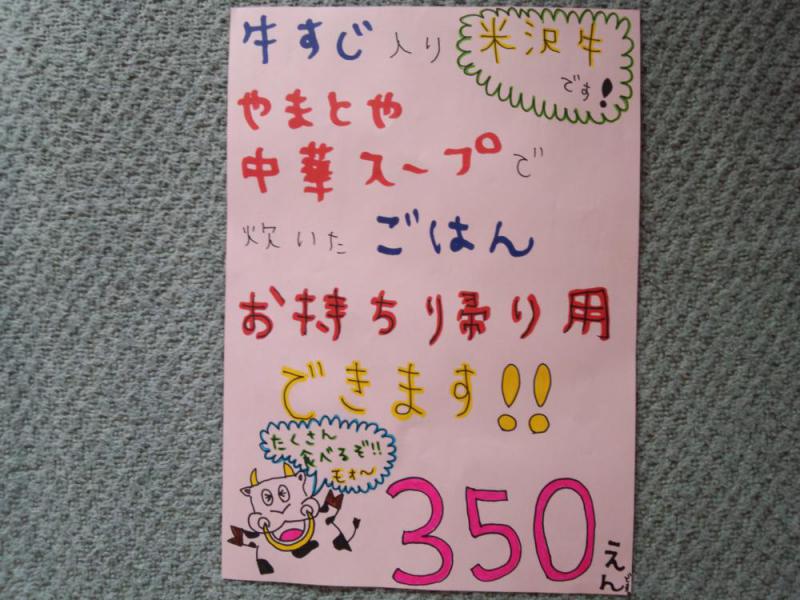 牛すじ入り
米沢牛
です!
やまとや
中華スープで
炊いたごはん
お持ちり帰り用
できます!!
たくさん
食べるぞ!!
モォ〜
350えん